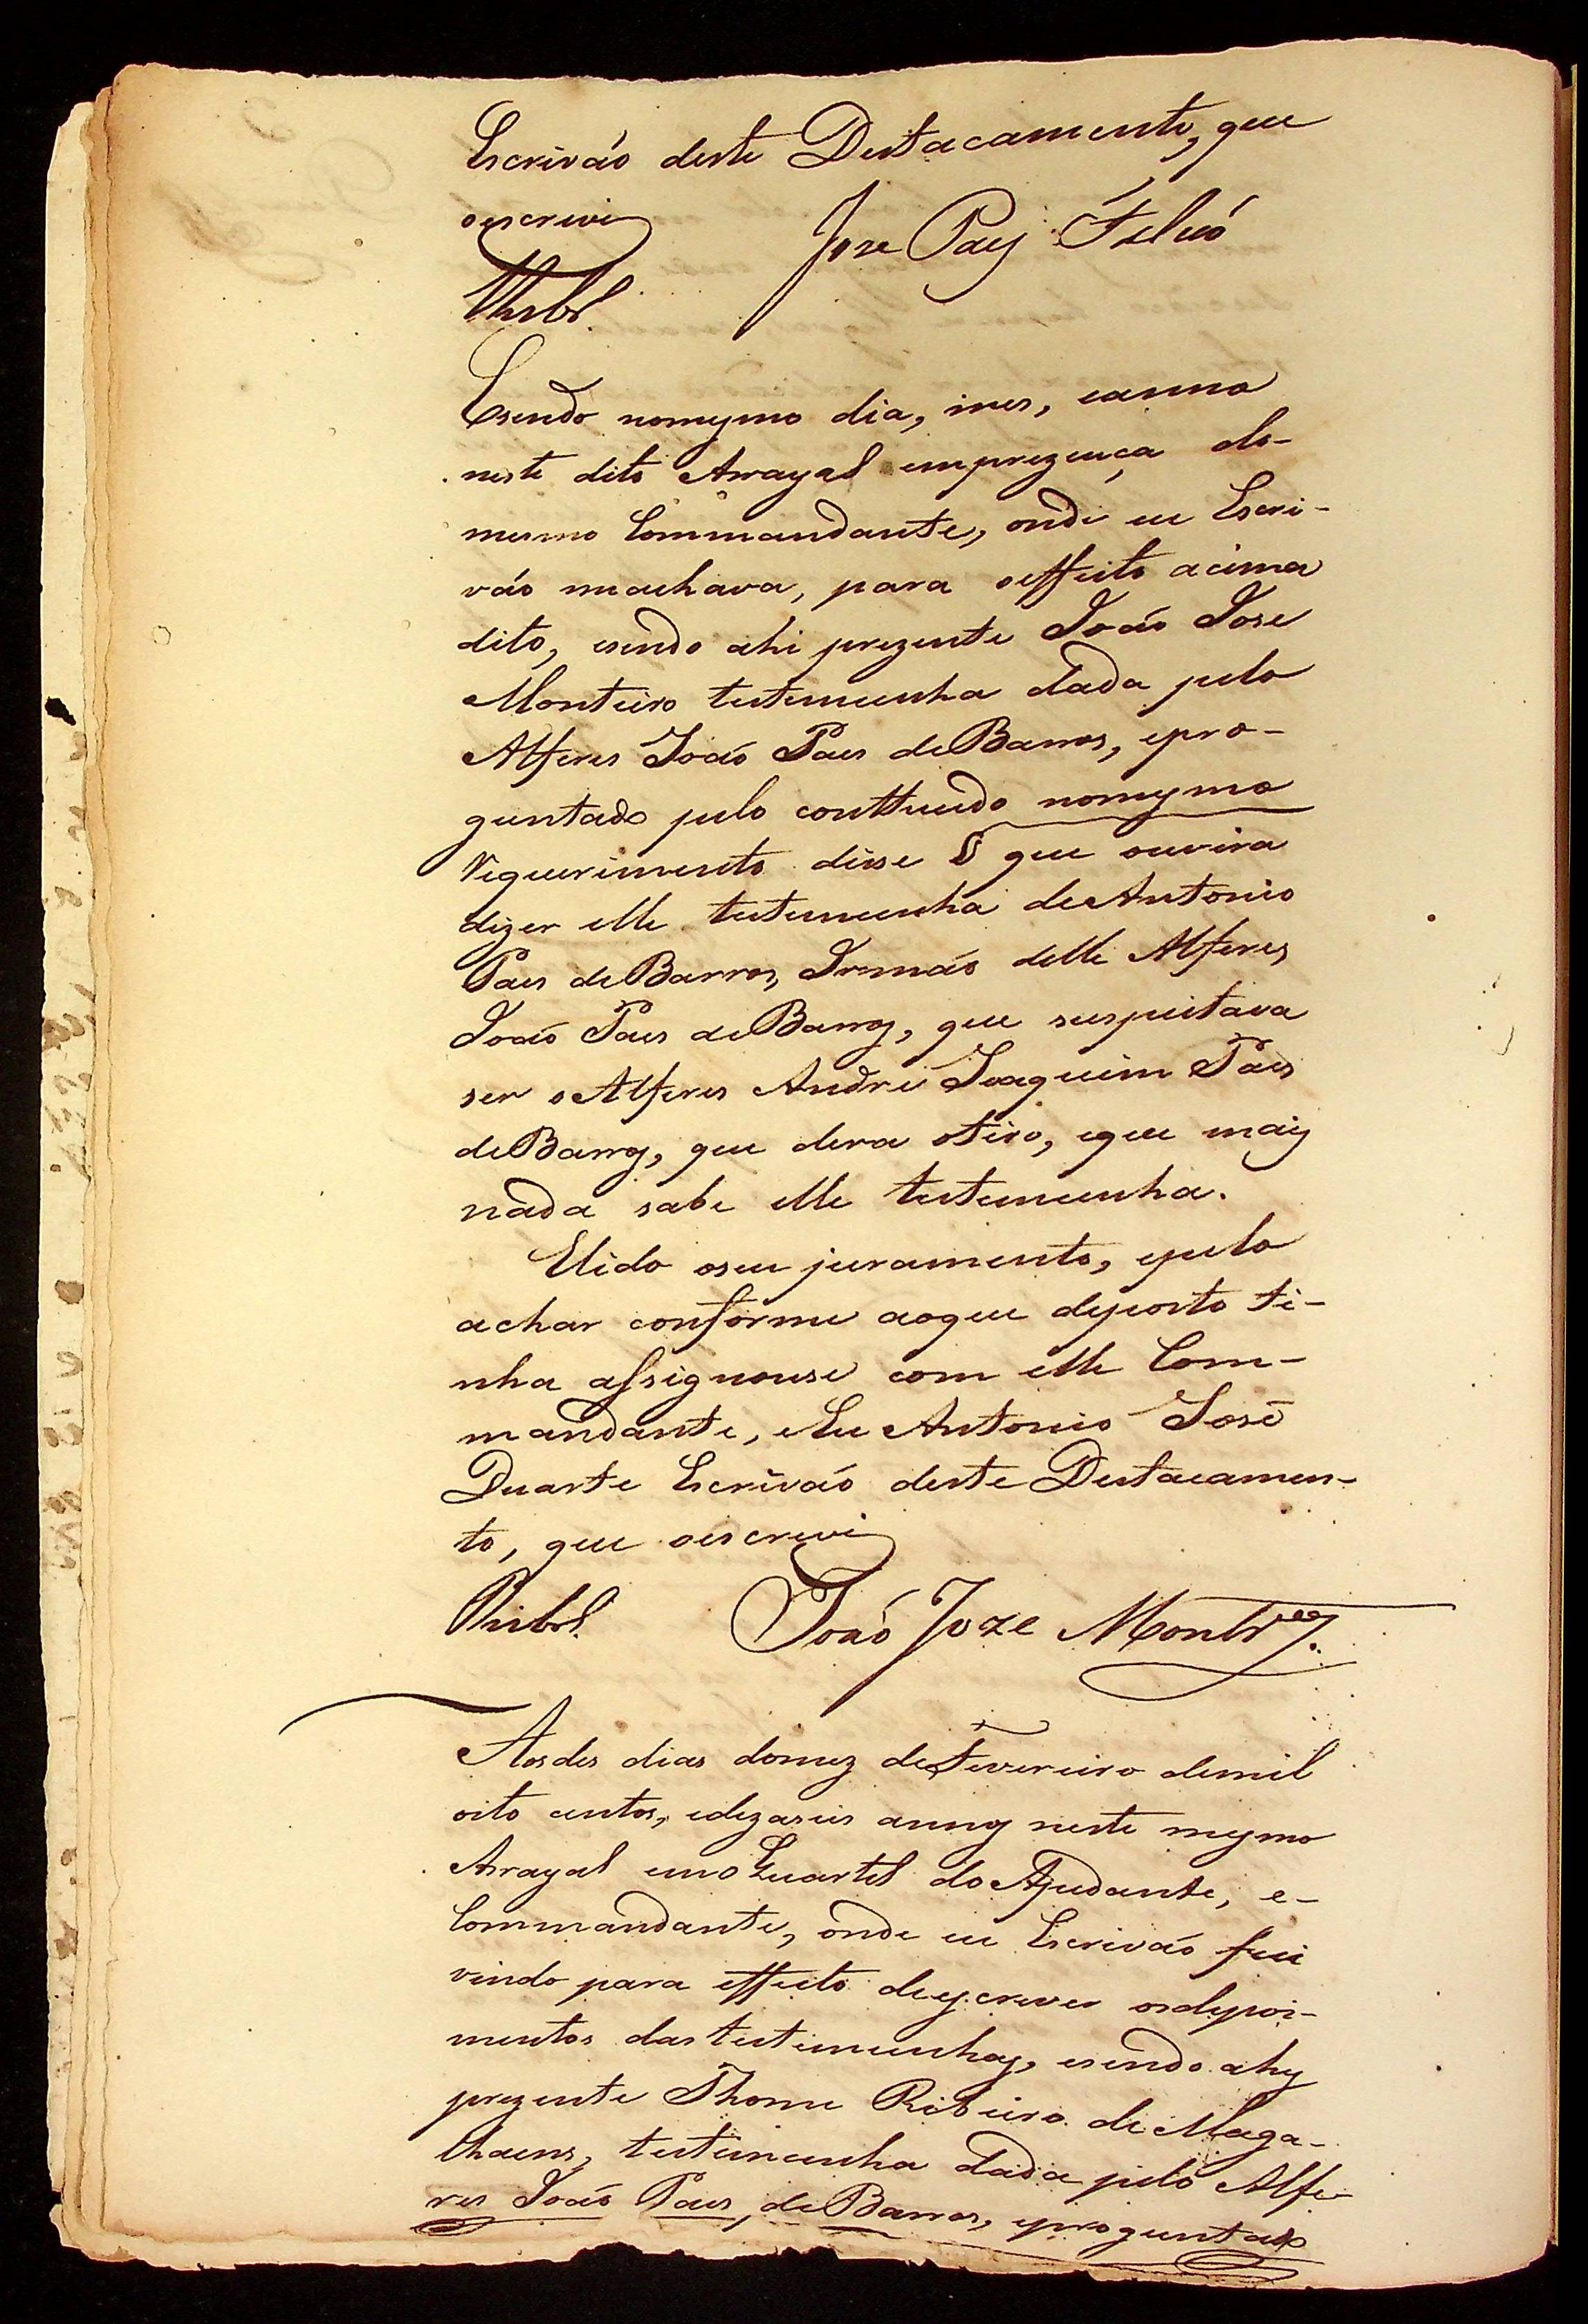 Escrivaõ deste Destacamento, que
oescrevi
Jose Paes Falcaó
Esendo nomesmo dia, mes, eanno
neste dito Arrayal emprezença do-
mesmo Commandante, onde eu Escri-
vaõ meachava, para oeffeito acima
dito, esendo ahi prezente Joaõ Jose
Monteiro testemunha dada pelo
Alferes Joaõ Paes deBarros, epro-
guntado pelo conttheudo nomesmo
Requerimento disse que ouvira
dizer elle testemunha deAntonio
Paes deBarros, Irmaõ delle Alferes
Joaõ Paes deBarros, que suspeitava
ser oAlferes Andre Joaquim Paes
deBarros, que dera otiro, eque mais
nada sabe elle testemunha.
Elido oseu juramento, epelo
achar conforme aoque deposto ti-
nha assignouse com elle Com-
mandante, eEu Antonio José
Duarte Escrivaõ deste Destacamen-
to, que oescrevi
João Joze Montrº
Aosdes dias domez deFevereiro demil
oito centos, edezaseis annos neste mesmo
Arrayal emoQuartel doAjudante, e-
Commandante, onde eu Escrivaõ fui
vindo para effeito deescrever osdepoi-
mentos dastestemunhas, esendo ahy
prezente Thome Ribeiro de Maga-
lhaens, testimunha dada pelo Alfe-
res Joaõ Paes, deBarros, eproguntado